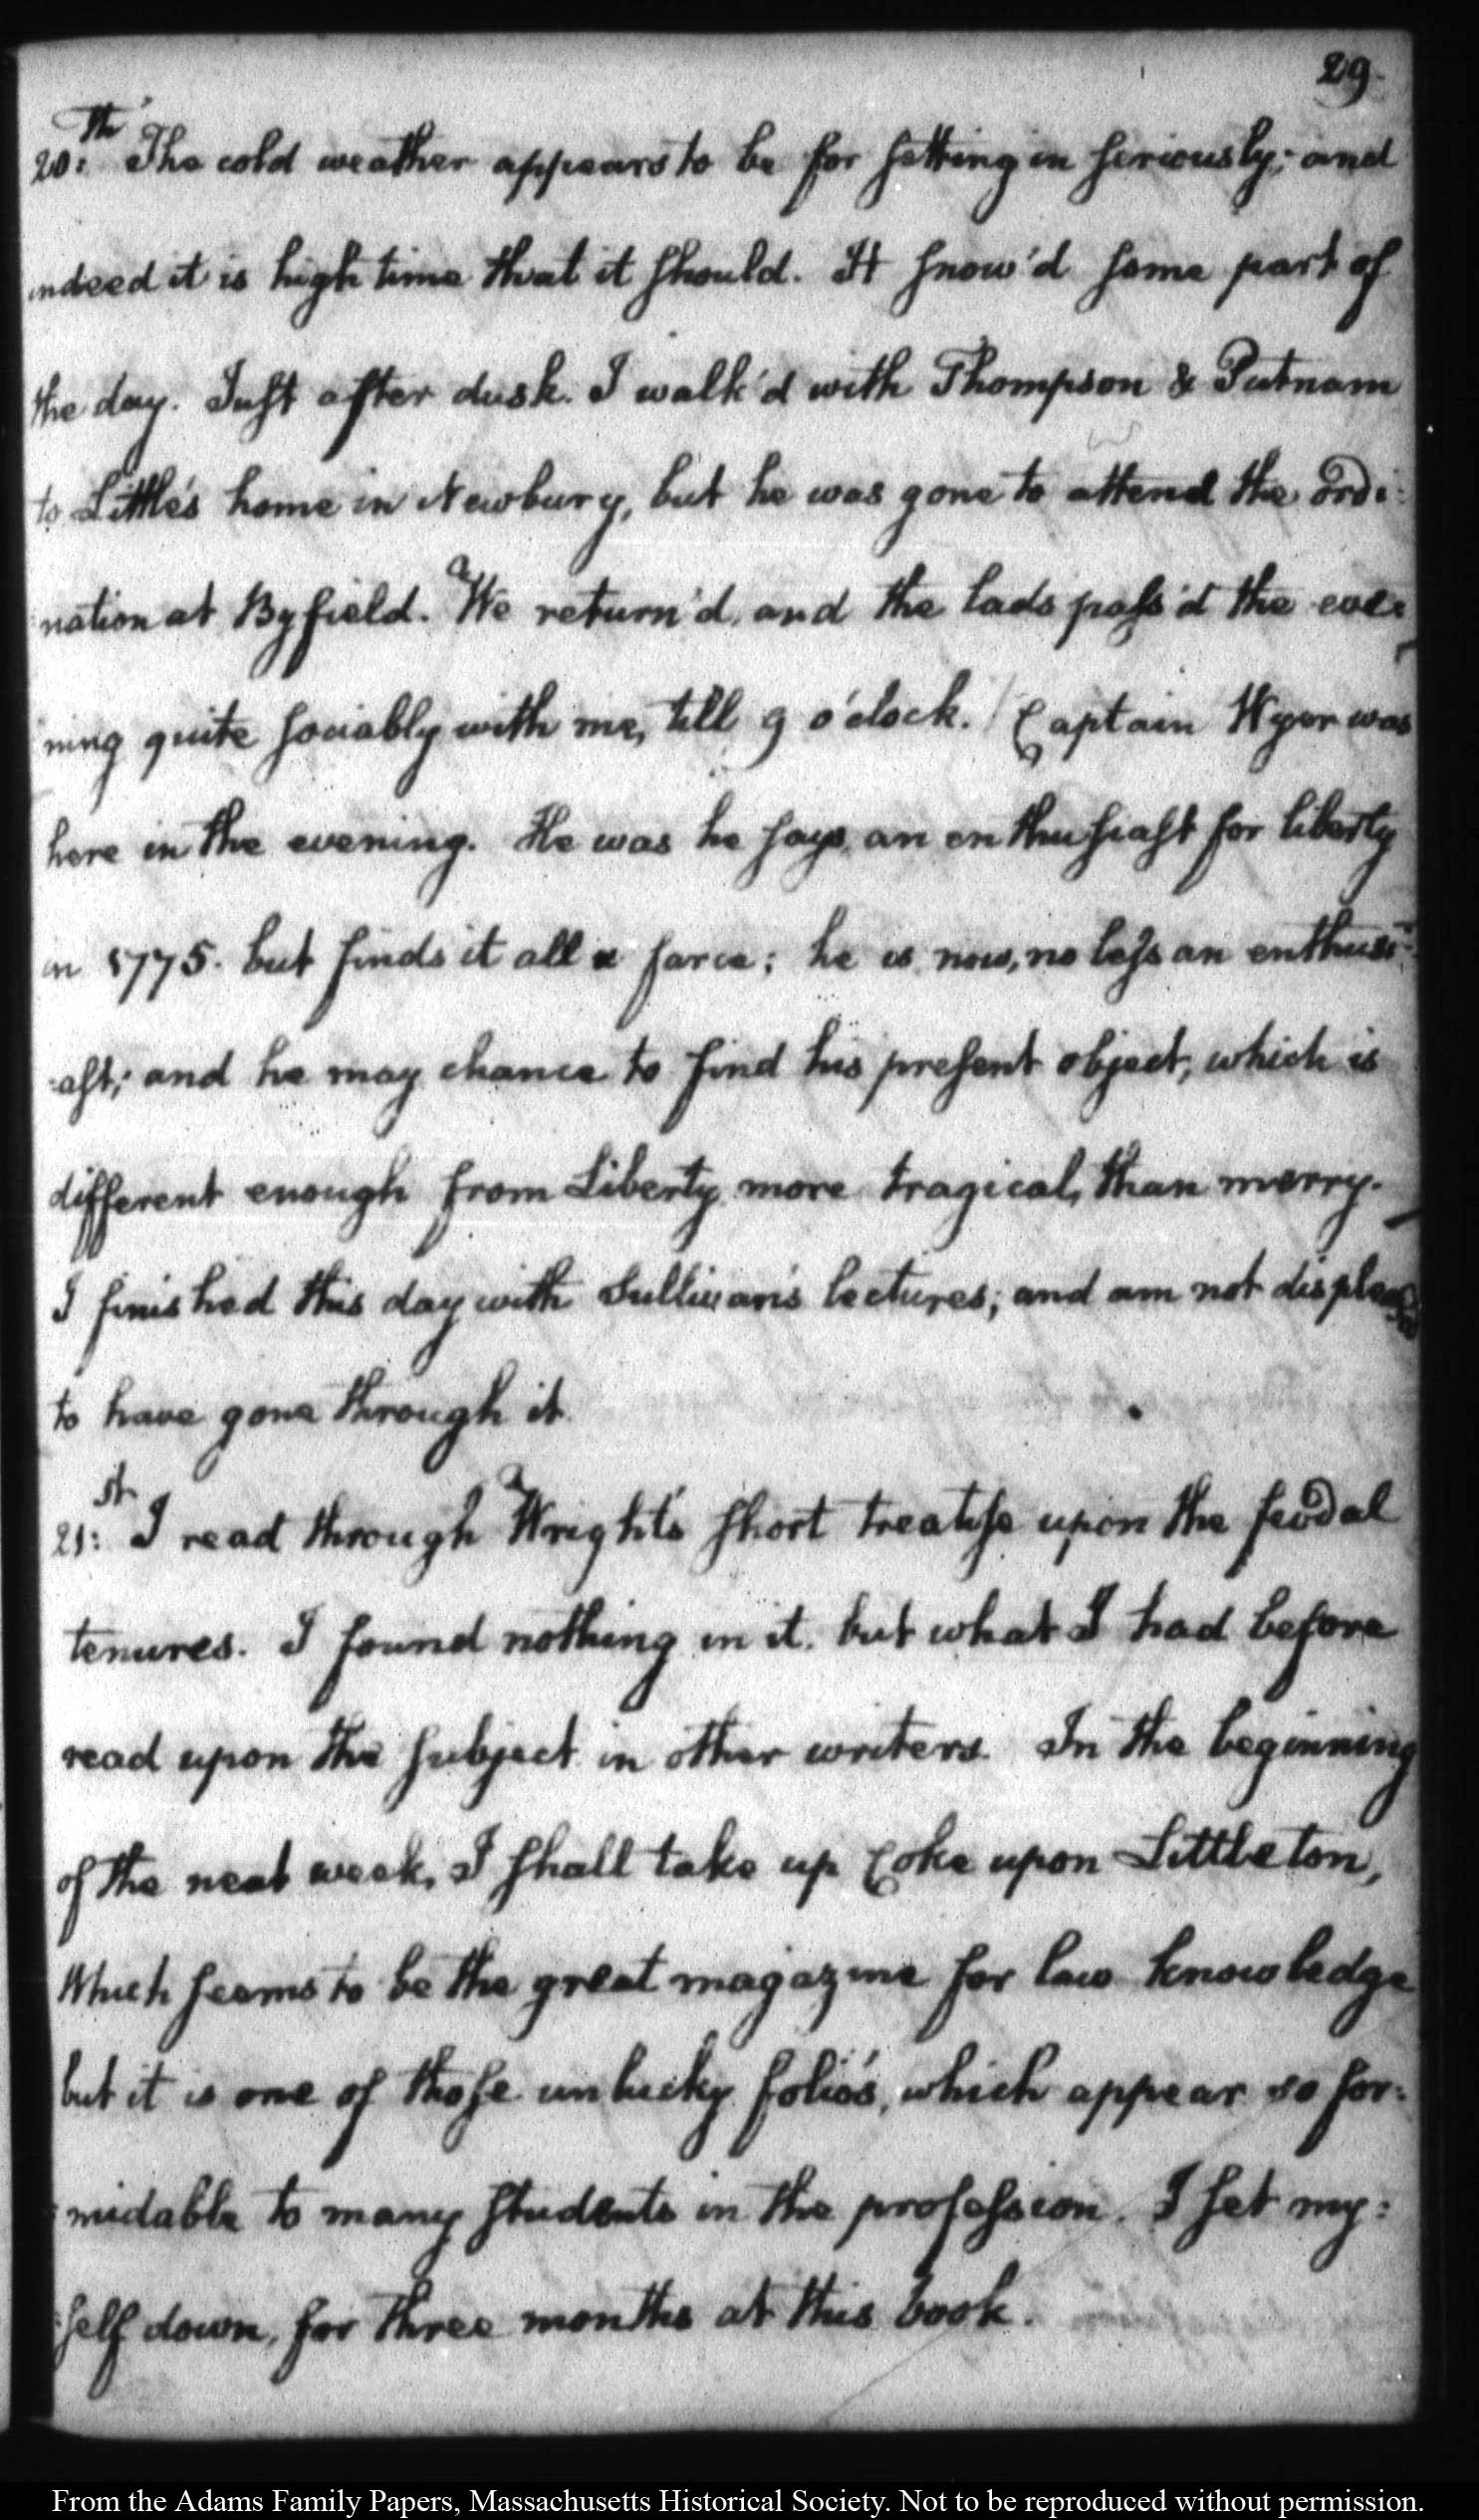 29.
20:th The cold weather appears to be for setting in seriously; and
indeed it is high time that it should. It snow'd some part of
the day. Just after dusk. I walk'd with Thompson & Putnam
to Little's home in Newbury, but he was gone to attend the ordi-
nation at Byfield. We return'd, and the lads pass'd the eve-
ning quite sociably with me, till 9 o'clock. Captain Wyer was
here in the evening. He was he says, an enthusiast for liberty
in 1775. but finds it all a farce; he is now, no less an enthusi-
-ast; and he may chance to find his present object, which is
different enough from Liberty more tragical, than merry.
I finished this day with Sullivan's lectures; and am not displeased
to have gone through it.
21:st I read through Wright's short treatise upon the feodal
tenures. I found nothing in it, but what I had before
read upon the subject in other writers. In the beginning
of the next week, I shall take up Coke upon Littleton,
Which seems to be the great magazine for law knowledge
but it is one of those unlucky folio's, which appear so for:
:midable to many students in the profession. I set my:
:self down, for three months at this book.
From the Adams Family Papers, Massachusetts Historical Society. Not to be reproduced without permission.